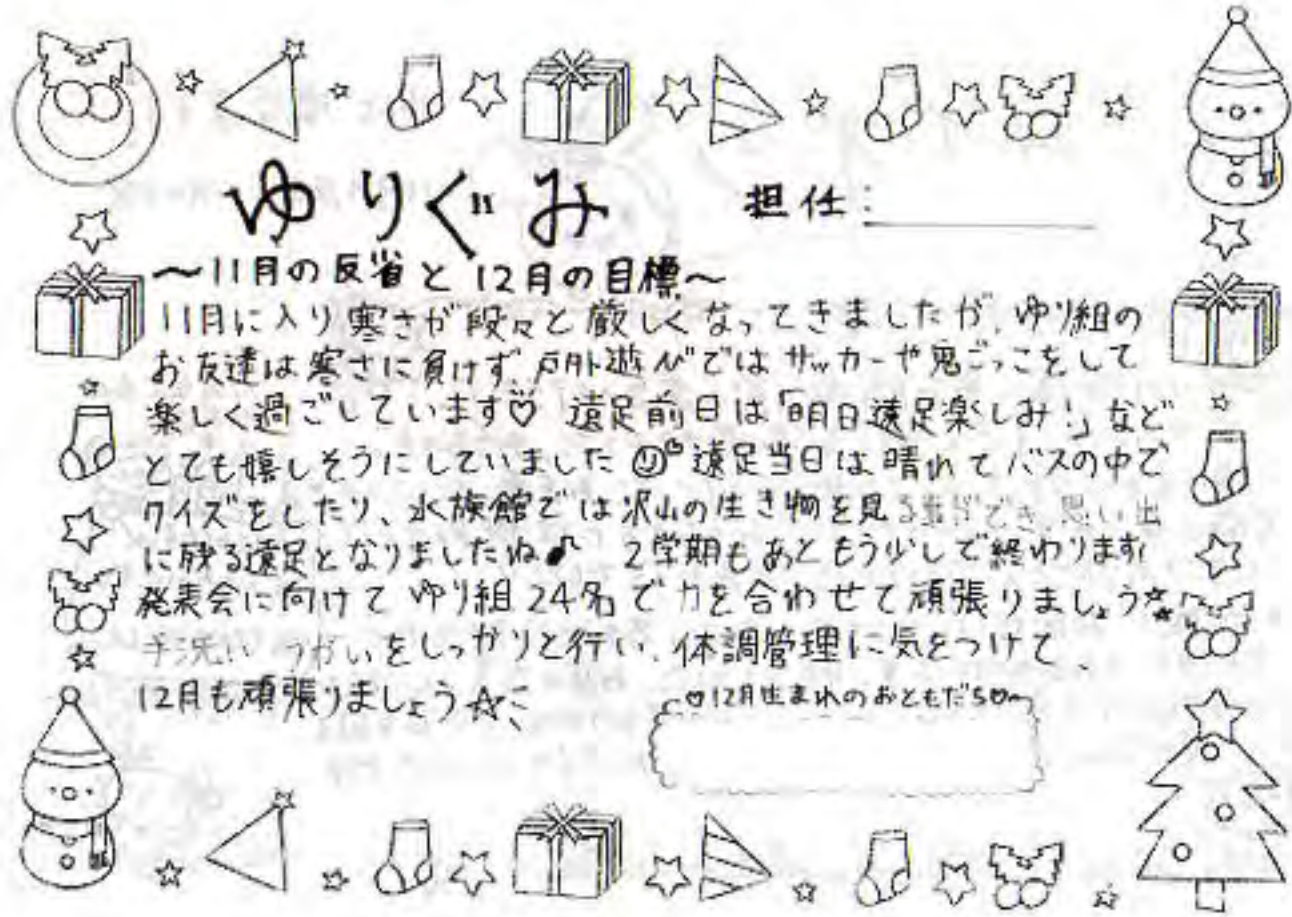 ゆりぐみ 担任:
～11月の反省と12月の目標～
11月に入り寒さが段々と厳しくなってきましたが、ゆり組の
お友達は寒さに負けず、戸外遊びではサッカーや鬼ごっこをして
楽しく過ごしています♡ 遠足前日は「明日遠足楽しみ!」など
とても嬉しそうにしていました 遠足当日は晴れてバスの中で
クイズをしたり、水族館では沢山の生き物を見る事ができ、思い出
に残る遠足となりましたね♪ 2学期もあともう少しで終わります
発表会に向けてゆり組24名で力を合わせて頑張りましょう☆
手洗い うがいをしっかりと行い、体調管理に気をつけて、
12月も頑張りましょう☆
♡12月生まれのおともだち♡